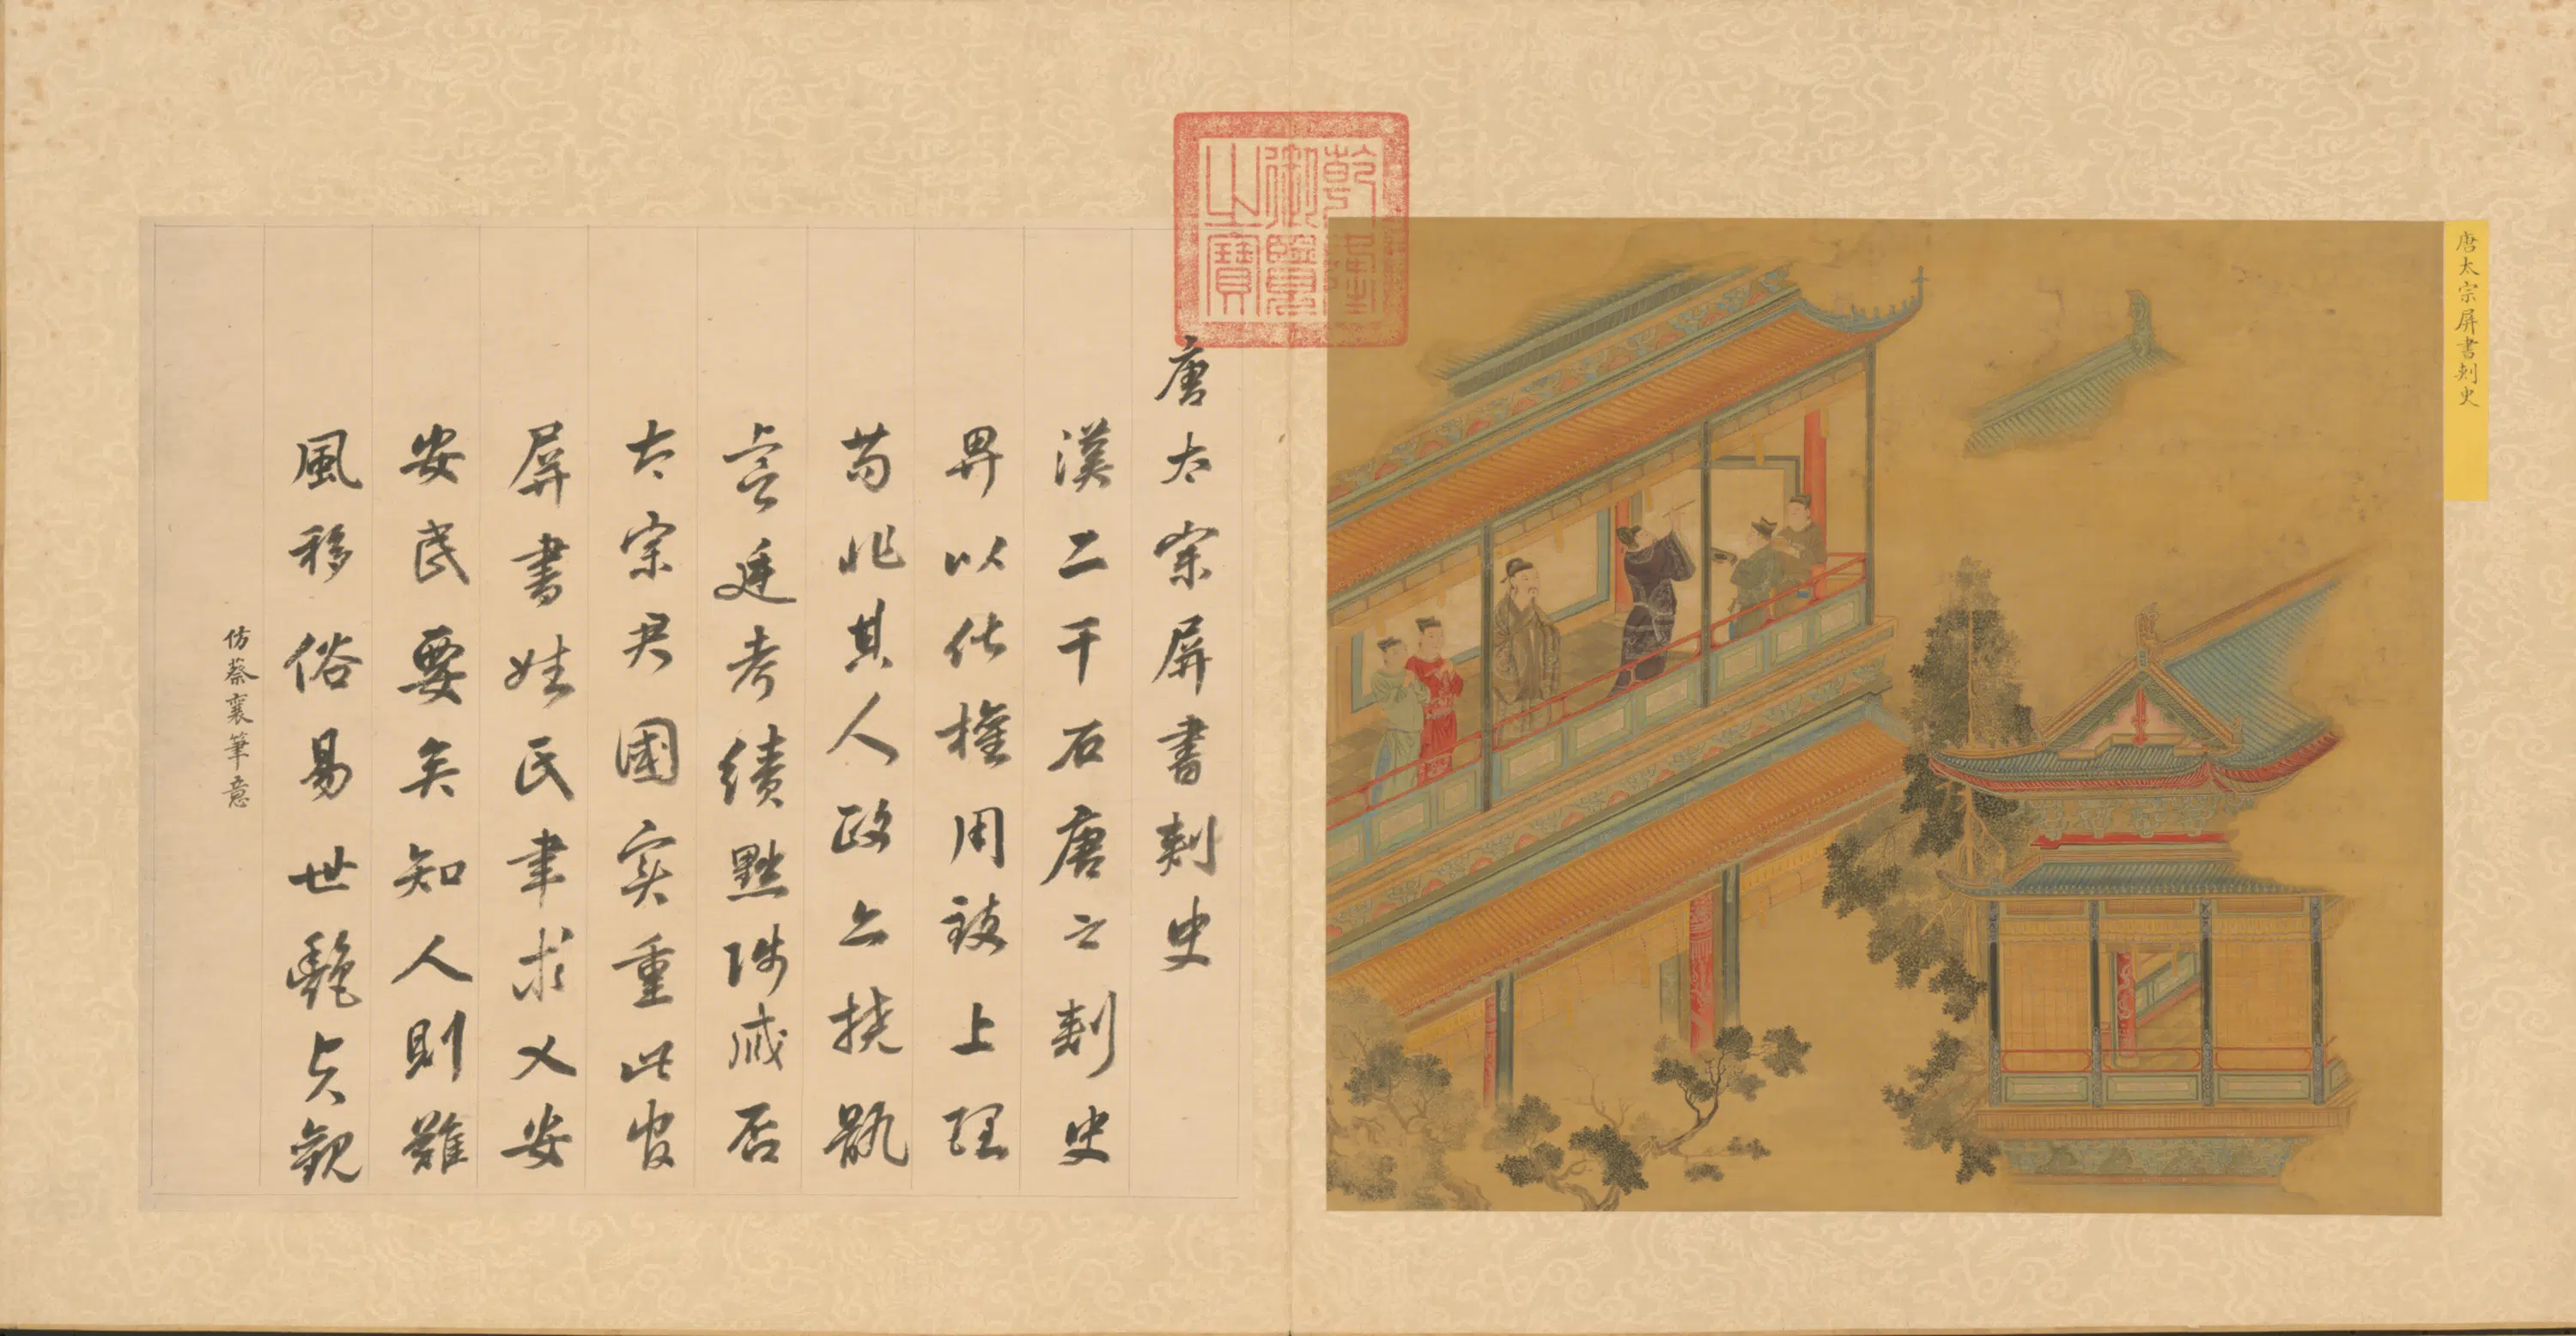 唐太宗屏書刺史
乾隆御覽之寶
唐太宗屏書刺史
漢二千石唐之刺史
畀以化權用致上理
苟非其人政亦撓骫
虞廷考績黜陟臧否
太宗君國實重此官
屏書姓氏聿求乂安
安民要矣知人則難
風移俗易世艷貞觀
仿蔡襄筆意